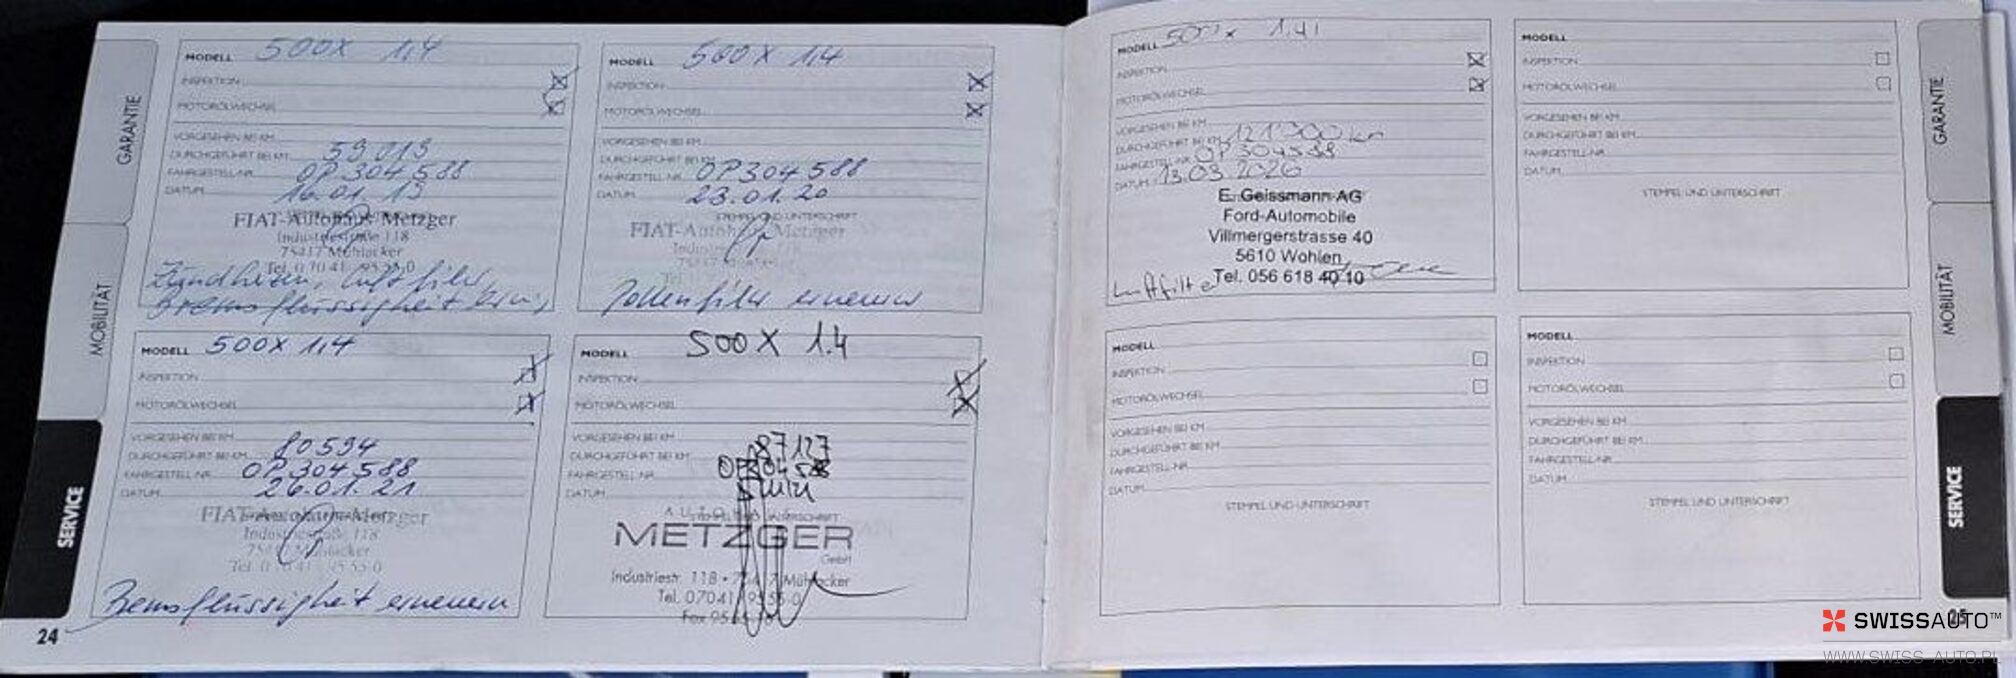 GARANTIE
MOBILITÄT
SERVICE
24
MODELL 500X 1,4
INSPEKTION
MOTORÖLWECHSEL
VORGESEHEN BEI KM
DURCHGEFÜHRT BEI KM 59.019
FAHRGESTELL-NR. 0P304588
DATUM 16.01.19
FIAT-Autohaus Metzger
Industriestraße 118
75417 Mühlacker
Tel. 0 70 41 / 95 55-0
Zündkerzen, Luftfilter,
Bremsflüssigkeit
MODELL 500X 1,4
INSPEKTION
MOTORÖLWECHSEL
VORGESEHEN BEI KM
DURCHGEFÜHRT BEI KM
FAHRGESTELL-NR. 0P304588
DATUM 23.01.20
STEMPEL UND UNTERSCHRIFT
FIAT-Autohaus Metzger
Pollenfilter erneuern
MODELL 500X 1,4
INSPEKTION
MOTORÖLWECHSEL
VORGESEHEN BEI KM
DURCHGEFÜHRT BEI KM 80594
FAHRGESTELL-NR. 0P304588
DATUM 26.01.21
FIAT-Autohaus Metzger
Industriestraße 118
75417 Mühlacker
Tel. 0 70 41 / 95 55-0
Bremsflüssigkeit erneuern
MODELL 500X 1.4
INSPEKTION
MOTORÖLWECHSEL
VORGESEHEN BEI KM
DURCHGEFÜHRT BEI KM 87127
FAHRGESTELL-NR. 0P304588
DATUM
METZGER
GmbH
Industriestr. 118 • 75417 Mühlacker
Tel. 07041 / 95 55-0
Fax 95
MODELL 500x 1.4
INSPEKTION
MOTORÖLWECHSEL
VORGESEHEN BEI KM
DURCHGEFÜHRT BEI KM 121'300 km
FAHRGESTELL-NR. 0P304588
DATUM 13.03.2026
E. Geissmann AG
Ford-Automobile
Villmergerstrasse 40
5610 Wohlen
Tel. 056 618 40 10
Luftfilter
MODELL
INSPEKTION
MOTORÖLWECHSEL
VORGESEHEN BEI KM
DURCHGEFÜHRT BEI KM
FAHRGESTELL-NR.
DATUM
STEMPEL UND UNTERSCHRIFT
MODELL
INSPEKTION
MOTORÖLWECHSEL
VORGESEHEN BEI KM
DURCHGEFÜHRT BEI KM
FAHRGESTELL-NR.
DATUM
STEMPEL UND UNTERSCHRIFT
MODELL
INSPEKTION
MOTORÖLWECHSEL
VORGESEHEN BEI KM
DURCHGEFÜHRT BEI KM
FAHRGESTELL-NR.
DATUM
STEMPEL UND UNTERSCHRIFT
GARANTIE
MOBILITÄT
SERVICE
25
SWISSAUTO™
WWW.SWISS-AUTO.PL